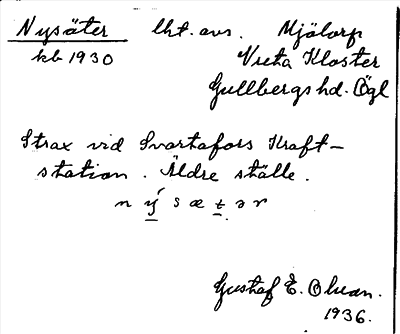 Nysäter lht. avs. Mjölorp
kb 1930 Vreta Kloster
Gullbergs hd. Ögl
Strax vid Svartafors Kraft-
station. Äldre ställe.
n ý s æ t ə r
Gustaf E. Olsson.
1936.